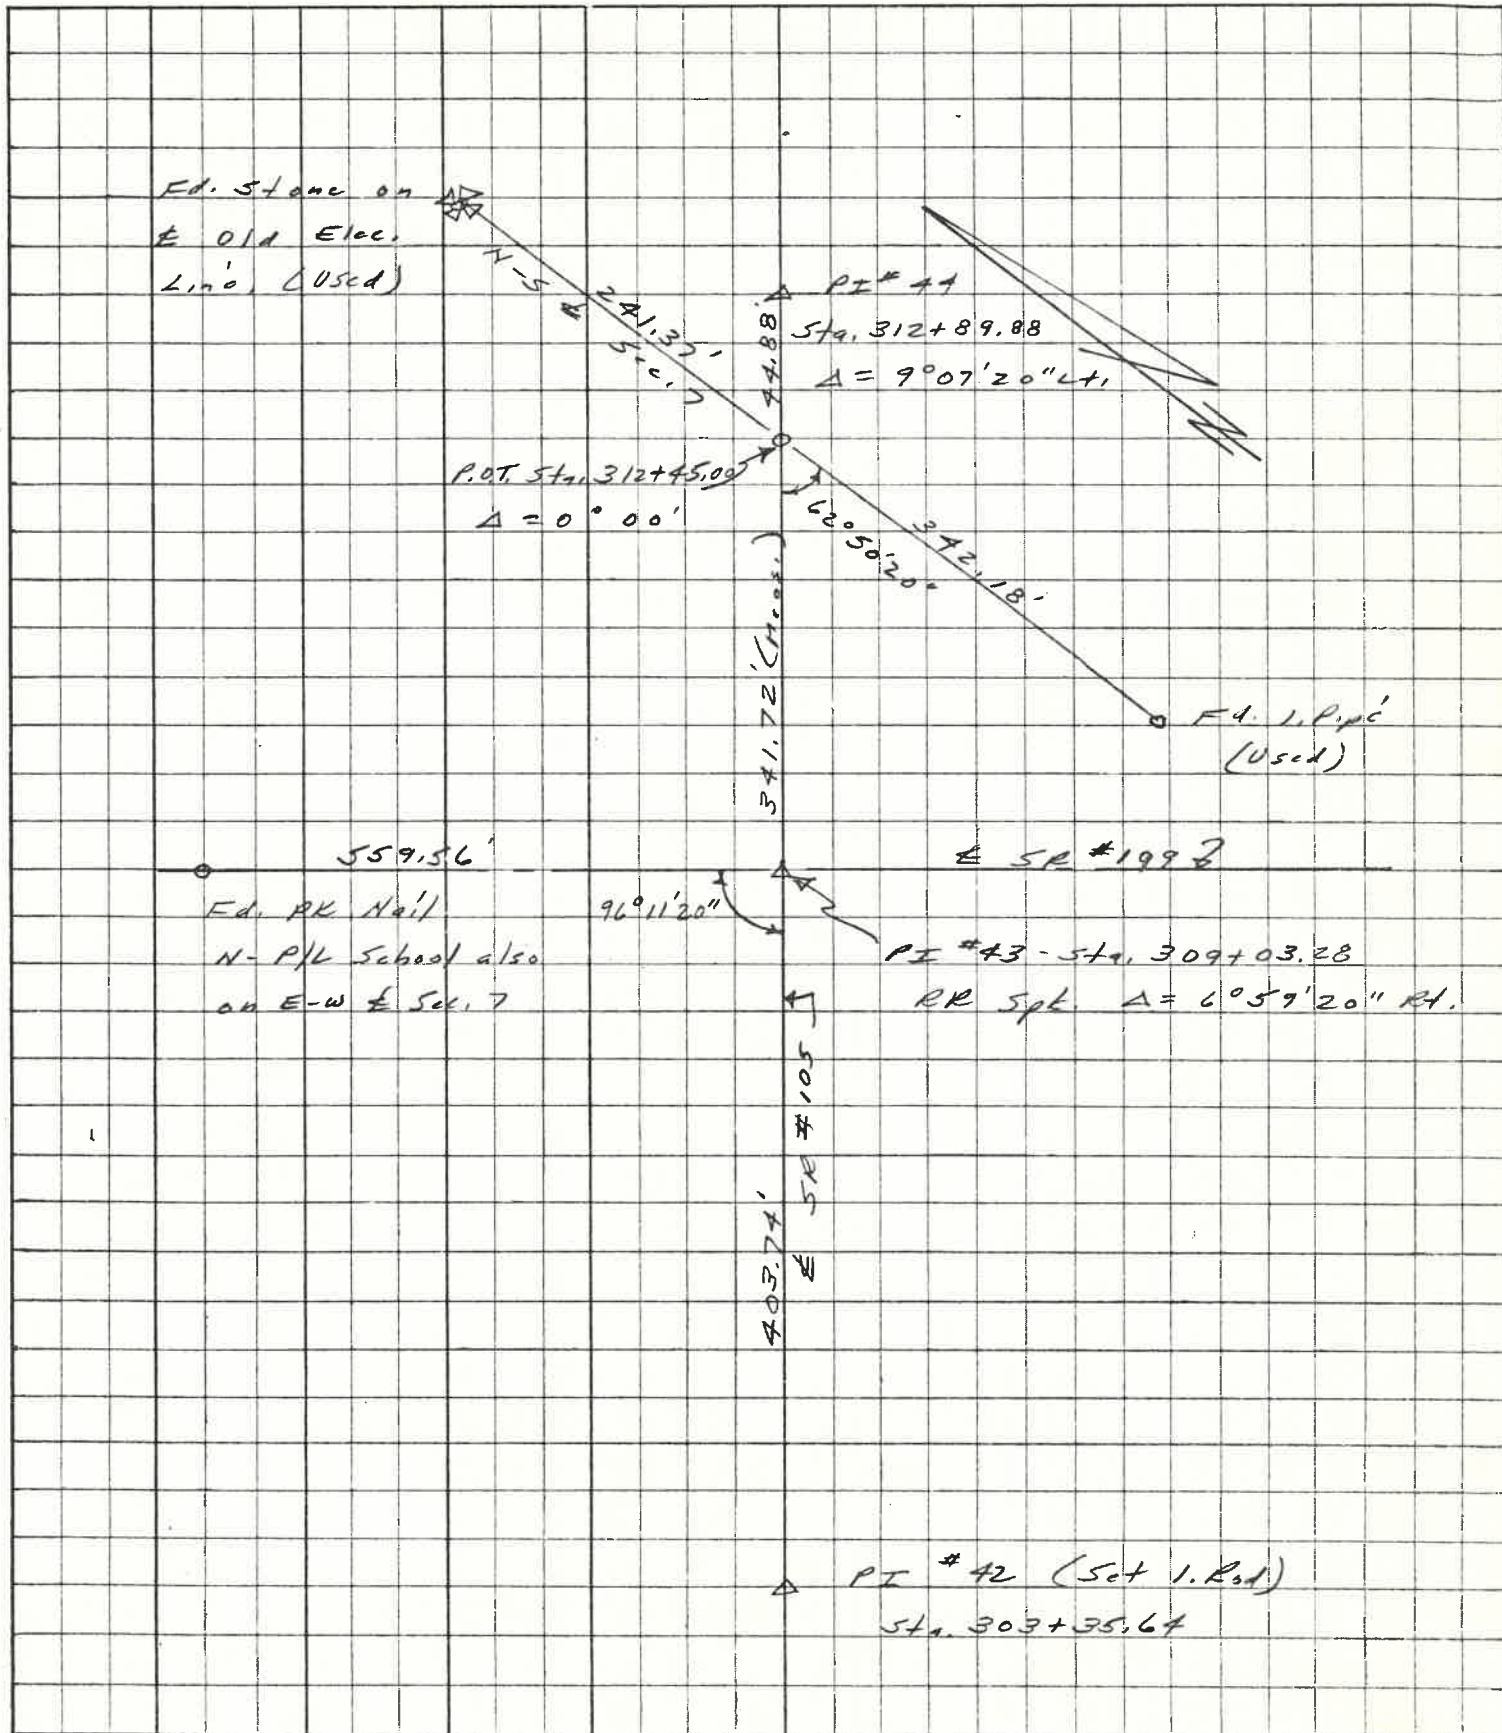 Fd. Stone on
℄ Old Elec.
Line. (Used)
N-S ℄ Sec. 7
241.37'
44.88'
PI # 44
Sta. 312+89.88
Δ = 9°07'20" Lt.
N
P.O.T. Sta. 312+45.00
Δ = 0° 00'
62°50'20"
342.18'
341.72' (Meas.)
Fd. I. Pipe
(Used)
559.56'
℄ SR #199
Fd. PK Nail
N- P/L School also
on E-W ℄ Sec. 7
96°11'20"
PI #43 - Sta. 309+03.28
RR Spk. Δ = 6°59'20" Rt.
℄ SR #105
403.74'
PI #42 (Set I. Rod)
Sta. 303+35.64